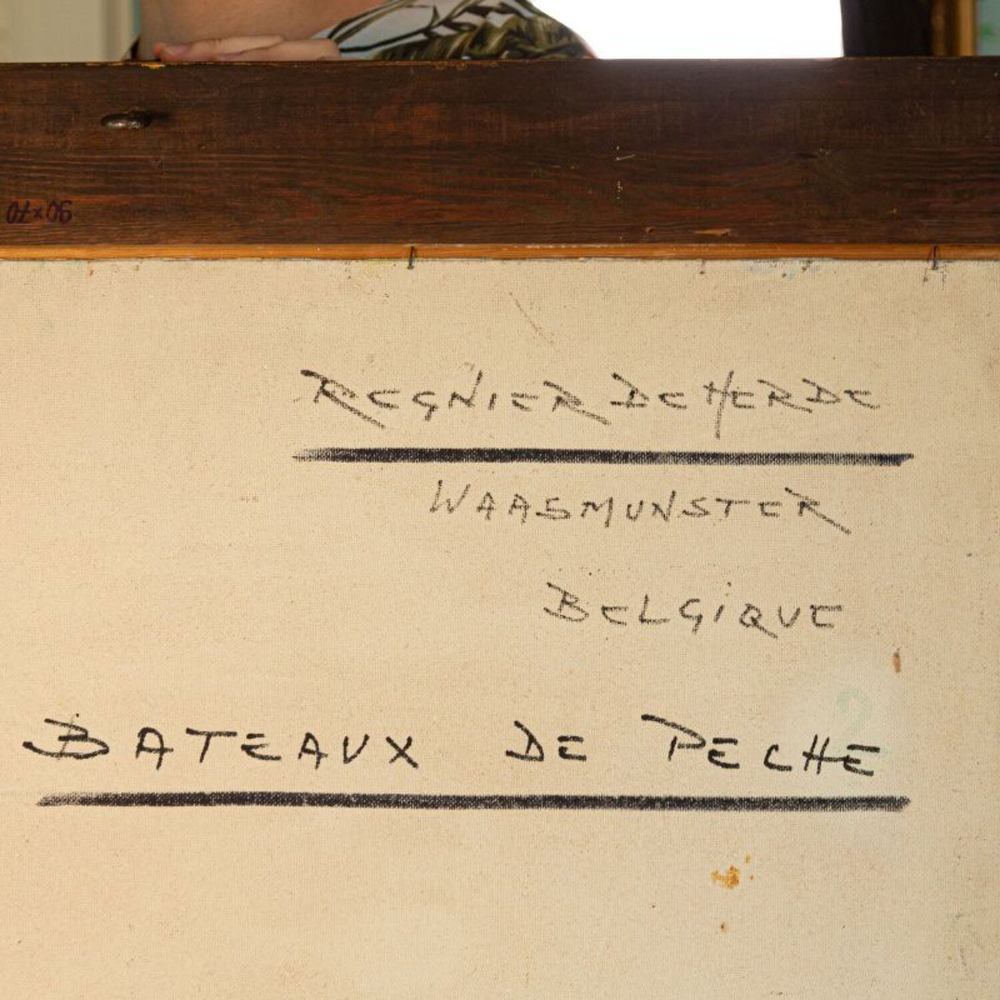 90x70
REGNIER DE HERDE
WAASMUNSTER
BELGIQUE
BATEAUX DE PECHE